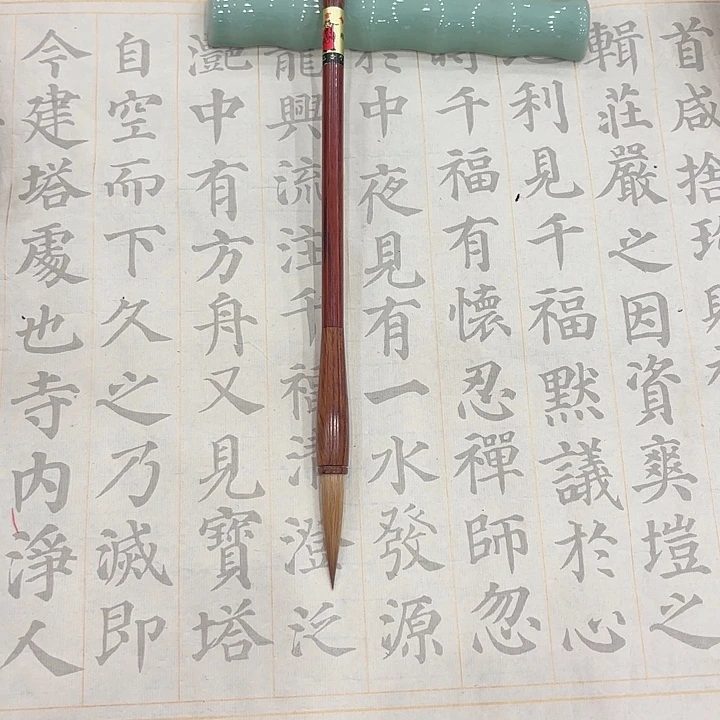 首咸捨
輯莊嚴之因資爽塏之
利見千福默議於心
時千福有懷忍禪師忽
於中夜見有一水發源
龍興流注千福清澄泛
灧中有方舟又見寶塔
自空而下久之乃滅即
今建塔處也寺內淨人